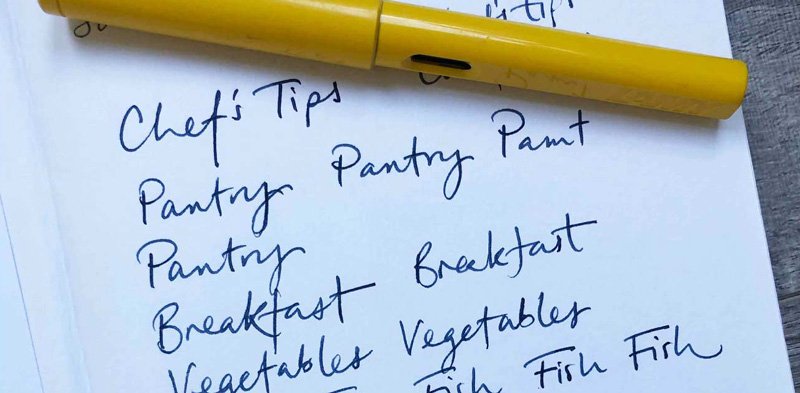 Chef's Tips
Pantry Pantry Pamt
Pantry
Breakfast Breakfast
Vegetables Vegetables
Fish Fish Fish